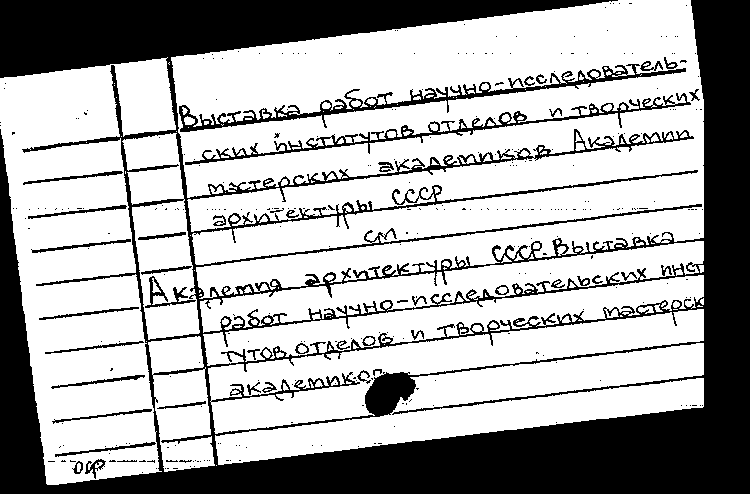 Выставка работ научно-исследователь-
ских институтов, отделов и творческих
мастерских академиков Академии
архитектуры СССР
см.
Академия архитектуры СССР. Выставка
работ научно-исследовательских инст
тутов, отделов и творческих мастерск
академиков